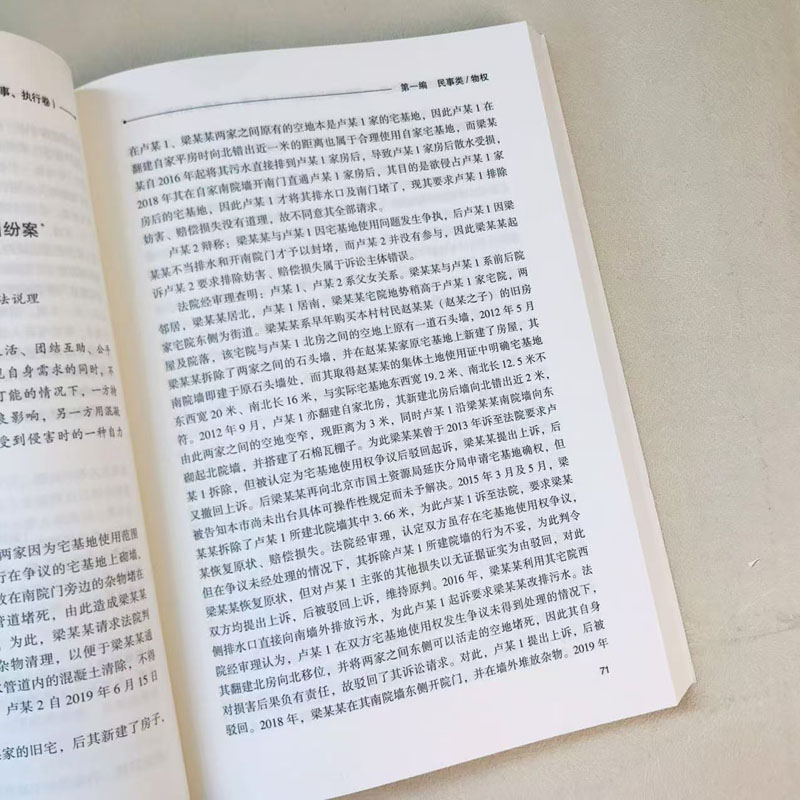 事、执行卷）
纷案*
法说理
活、团结互助、公平
自身需求的同时，不
可能的情况下，一方排
良影响，另一方用混凝
受到侵害时的一种自力
两家因为宅基地使用范围
行在争议的宅基地上砌墙，
放在南院门旁边的杂物堵在
管道堵死，由此造成梁某某
。为此，梁某某请求法院判
杂物清理，以便于梁某某通
水管道内的混凝土清除，不得
卢某 2 自 2019 年 6 月 15 日
家的旧宅，后其新建了房子，
第一编 民事类/物权
在卢某 1、梁某某两家之间原有的空地本是卢某 1 家的宅基地，因此卢某 1 在
翻建自家平房时向北错出近一米的距离也属于合理使用自家宅基地，而梁某
某自 2016 年起将其污水直接排到卢某 1 家房后，导致卢某 1 家房后散水受损，
2018 年其在自家南院墙开南门直通卢某 1 家房后，其目的是欲侵占卢某 1 家
房后的宅基地，因此卢某 1 才将其排水口及南门堵了，现其要求卢某 1 排除
妨害、赔偿损失没有道理，故不同意其全部请求。
卢某 2 辩称：梁某某与卢某 1 因宅基地使用问题发生争执，后卢某 1 因梁
某某不当排水和开南院门才予以封堵，而卢某 2 并没有参与，因此梁某某起
诉卢某 2 要求排除妨害、赔偿损失属于诉讼主体错误。
法院经审理查明：卢某 1、卢某 2 系父女关系。梁某某与卢某 1 系前后院
邻居，梁某某居北，卢某 1 居南，梁某某宅院地势稍高于卢某 1 家宅院，两
家宅院东侧为街道。梁某某系早年购买本村村民赵某某（赵某之子）的旧房
屋及院落，该宅院与卢某 1 北房之间的空地上原有一道石头墙，2012 年 5 月
梁某某拆除了两家之间的石头墙，并在赵某某家原宅基地上新建了房屋，其
南院墙即建于原石头墙处，而其取得赵某某的集体土地使用证中明确宅基地
东西宽 20 米、南北长 16 米，与实际宅基地东西宽 19.2 米、南北长 12.5 米不
符。2012 年 9 月，卢某 1 亦翻建自家北房，其新建北房后墙向北错出近 2 米，
由此两家之间的空地变窄，现距离为 3 米，同时卢某 1 沿梁某某南院墙向东
砌起北院墙，并搭建了石棉瓦棚子。为此梁某某曾于 2013 年诉至法院要求卢
某 1 拆除，但被认定为宅基地使用权争议后驳回起诉，梁某某提出上诉，后
又撤回上诉。后梁某某再向北京市国土资源局延庆分局申请宅基地确权，但
被告知本市尚未出台具体可操作性规定而未予解决。2015 年 3 月及 5 月，梁
某某拆除了卢某 1 所建北院墙其中 3.66 米，为此卢某 1 诉至法院，要求梁某
某恢复原状、赔偿损失。法院经审理，认定双方虽存在宅基地使用权争议，
但在争议未经处理的情况下，其拆除卢某 1 所建院墙的行为不妥，为此判令
梁某某恢复原状，但对卢某 1 主张的其他损失以无证据证实为由驳回，对此
双方均提出上诉，后被驳回上诉，维持原判。2016 年，梁某某利用其宅院西
侧排水口直接向南墙外排放污水，为此卢某 1 起诉要求梁某某改排污水。法
院经审理认为，卢某 1 在双方宅基地使用权发生争议未得到处理的情况下，
其翻建北房向北移位，并将两家之间东侧可以活走的空地堵死，因此其自身
对损害后果负有责任，故驳回了其诉讼请求。对此，卢某 1 提出上诉，后被
驳回。2018 年，梁某某在其南院墙东侧开院门，并在墙外堆放杂物。2019 年
71